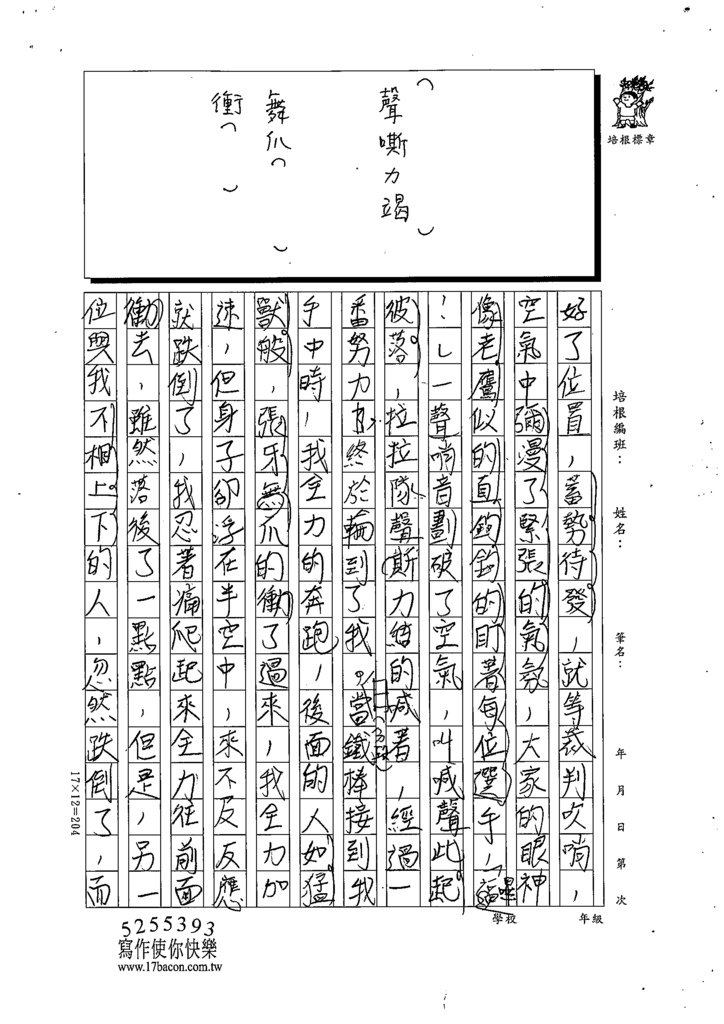 聲嘶力竭
舞爪
衝
培根標章
培根編班：
姓名：
筆名：
年 月 日 第 次
好了位置，蓄勢待發，就等裁判吹哨，
空氣中瀰漫了緊張的氣氛，大家的眼神
像老鷹似的直鉤鉤的盯著每位選手，「嗶
！」一聲哨音劃破了空氣，叫喊聲此起
彼落，拉拉隊聲斯力竭的喊著，經過一
番努力，終於輪到了我。當鐵棒接到我
手中時，我全力的奔跑，後面的人如猛
獸般，張牙無爪的衝了過來，我全力加
速，但身子卻浮在半空中，來不及反應
就跌倒了，我忍著痛爬起來全力往前面
衝去，雖然落後了一點點，但是，另一
位與我不相上下的人，忽然跌倒了，而
17×12=204
學校
年級
5255393
寫作使你快樂
www.17bacon.com.tw